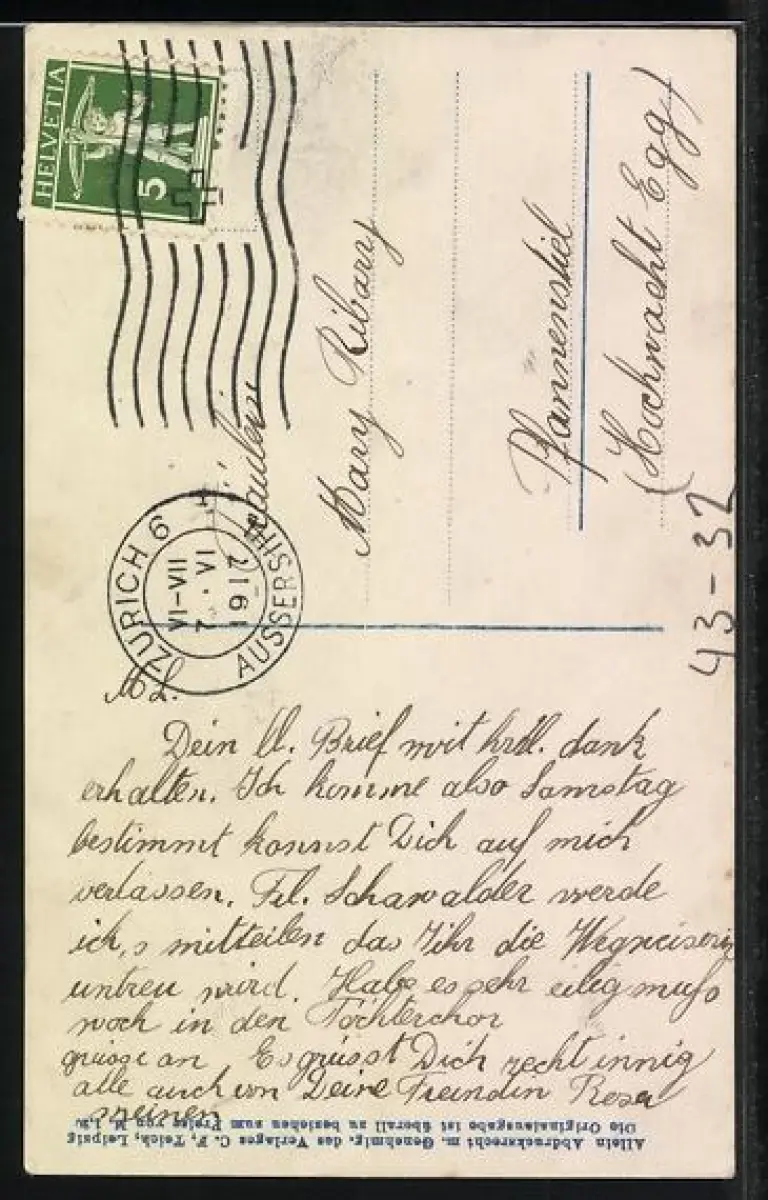 HELVETIA
5
ZÜRICH 6
AUSSERSIHL
VI-VII
7. VI
1912
Fräulein
Mary Ribary
Pfannenstiel
(Hochwacht Egg)
43-32
M L.
Dein ll. Brief mit hrzl. dank
erhalten. Ich komme also Samstag
bestimmt konnst Dich auf mich
verlassen. Frl. Schawalder werde
ich,s mitteilen das Ihr die Wegweiserin
untreu wird. Habe es sehr eilig muss
noch in den Töchterchor
grüsse an Es grüsst Dich recht innig
alle auch von Deine Freundin Rosa
meinen
Allein Abdrucksrecht m. Genehmig. des Verlages C. F. Teich, Leipzig
Die Originalausgabe ist überall zu beziehen zum Preise von M. 1.2